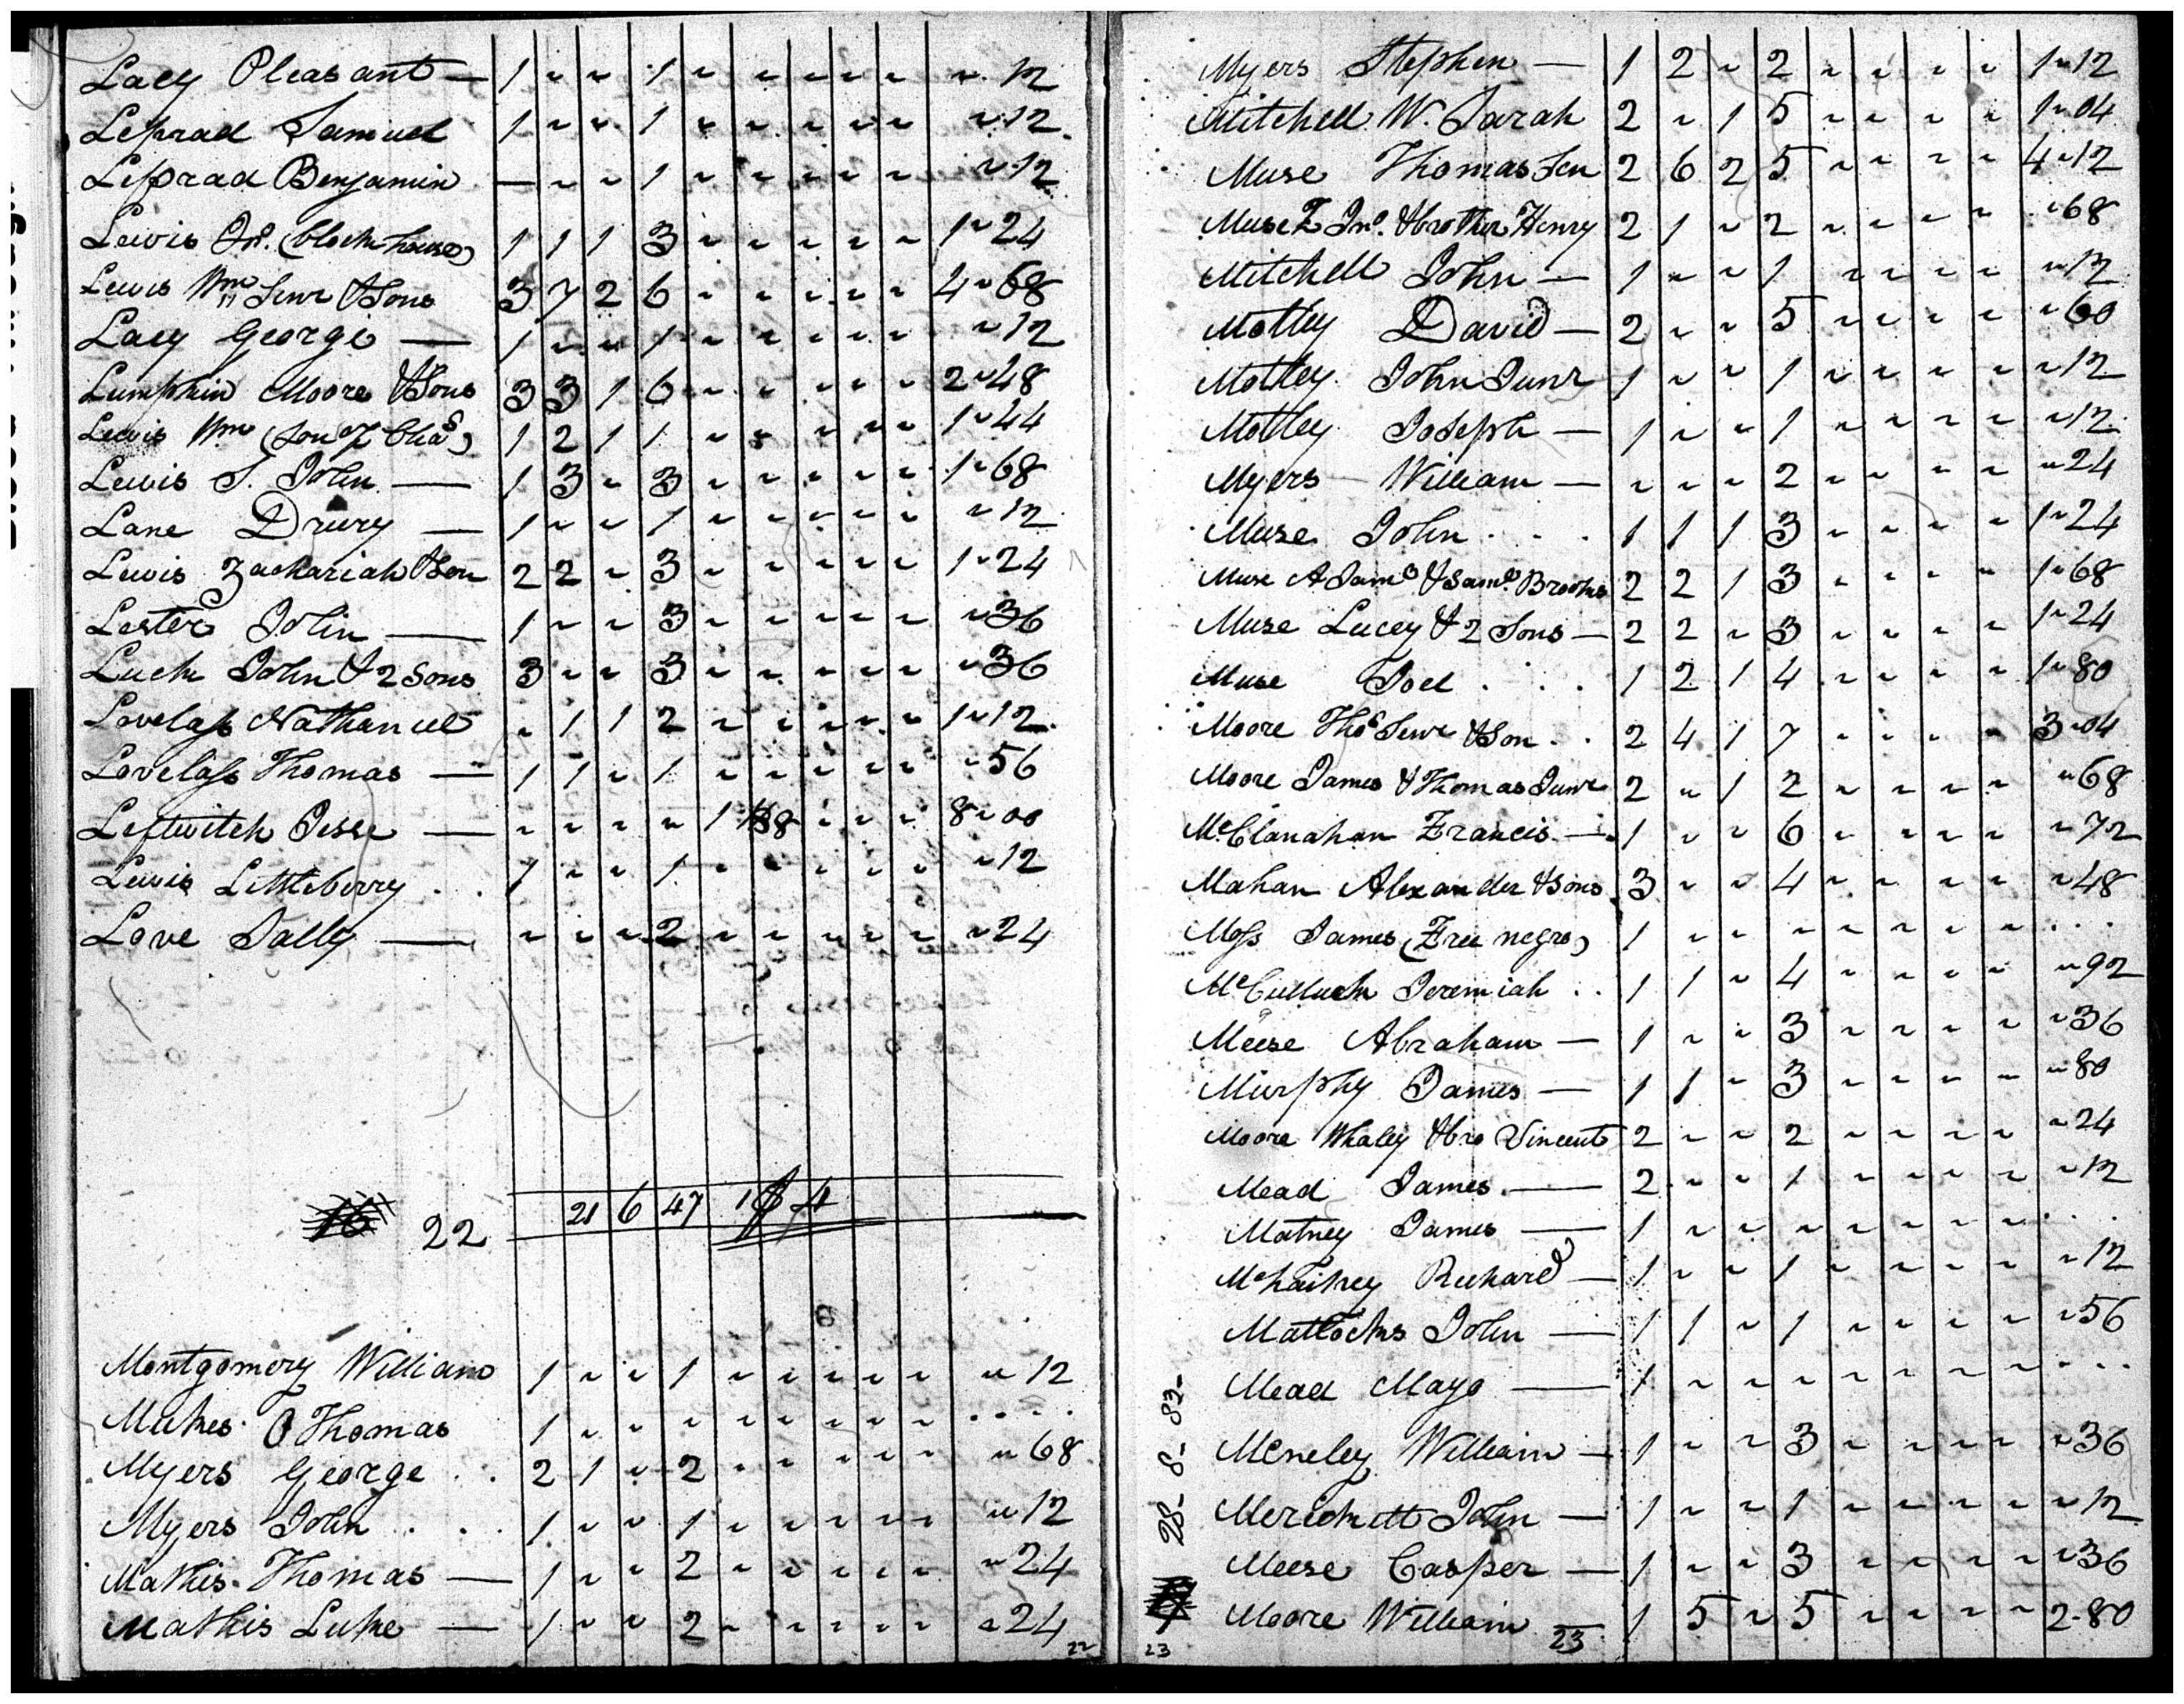 Lacy Pleasant — 1 " " 1 " " " " " " 12
Leprad Samuel 1 " " 1 " " " " " " 12
Leprad Benjamin — " " 1 " " " " " " 12
Lewis Jno. (block house) 1 1 1 3 " " " " " 1 " 24
Lewis Wm Senr & Sons 3 7 2 6 " " " " " 4 " 68
Lacy George — 1 " " 1 " " " " " " 12
Lumpkin Moore & Sons 3 3 1 6 " " " " " 2 " 48
Lewis Wm (son of Chas) 1 2 1 1 " " " " " 1 " 44
Lewis S. John — 1 3 " 3 " " " " " 1 " 68
Lane Drury — 1 " " 1 " " " " " " 12
Lewis Zachariah & Son 2 2 " 3 " " " " " 1 " 24
Lester John — 1 " " 3 " " " " " " 36
Luck John & 2 Sons 3 " " 3 " " " " " " 36
Lovelass Nathaniel " 1 1 2 " " " " " 1 " 12
Lovelass Thomas — 1 1 " 1 " " " " " " 56
Leftwitch Jesse — " " " " 1 8 " " " 8 " 00
Lewis Littleberry . . 1 " " 1 " " " " " " 12
Love Sally — " " " 2 " " " " " " 24
22 21 6 47 1 $ 4
Montgomery William 1 " " 1 " " " " " " 12
Thomas 1 " " " " " " " " . . . .
Myers George . . 2 1 " 2 " " " " " " 68
Myers John . . . 1 " " 1 " " " " " " 12
Mathis Thomas — 1 " " 2 " " " " " " 24
Mathis Luke — 1 " " 2 " " " " " " 24
22
Myers Stephen — 1 2 " 2 " " " " 1 " 12
Mitchell W. Sarah 2 " 1 5 " " " " 1 " 04
Muse Thomas Sen 2 6 2 5 " " " " 4 " 12
Muse F Jno. & brother Henry 2 1 " 2 " " " " " 68
Mitchell John — 1 " " 1 " " " " " 12
Motley David — 2 " " 5 " " " " " 60
Motley John Junr 1 " " 1 " " " " " 12
Motley Joseph — 1 " " 1 " " " " " 12
Myers William — " " " 2 " " " " " 24
Muse John . . . 1 1 1 3 " " " " 1 " 24
Muse A Jams & Saml. Brooks 2 2 1 3 " " " " 1 " 68
Muse Lucey & 2 Sons — 2 2 " 3 " " " " 1 " 24
Muse Joel . . . 1 2 1 4 " " " " 1 " 80
Moore Thos Senr & Son . . 2 4 1 7 " " " " 3 " 04
Moore James & Thomas Junr 2 " 1 2 " " " " " 68
McClanahan Francis — 1 " " 6 " " " " " 72
Mahan Alexander & Sons 3 " " 4 " " " " " 48
Moss James (Free negro) 1 " " " " " " " . . .
McCulluck Jeremiah . . 1 1 " 4 " " " " " 92
Meese Abraham — 1 " " 3 " " " " " 36
Murphy James — 1 1 " 3 " " " " " 80
Moore Whaley & bro Vincent 2 " " 2 " " " " " 24
Mead James — 2 " " 1 " " " " " 12
Matney James — 1 " " " " " " " . . .
Richard — 1 " " 1 " " " " " 12
Mattocks John — 1 1 " 1 " " " " " 56
Mead Mayo — 1 " " " " " " " . . .
Mcneley William — 1 " " 3 " " " " " 36
John — 1 " " 1 " " " " " 12
Meese Casper — 1 " " 3 " " " " " 36
Moore William 1 5 " 5 " " " " 2 - 80
28 - 8 - 83 -
23 23